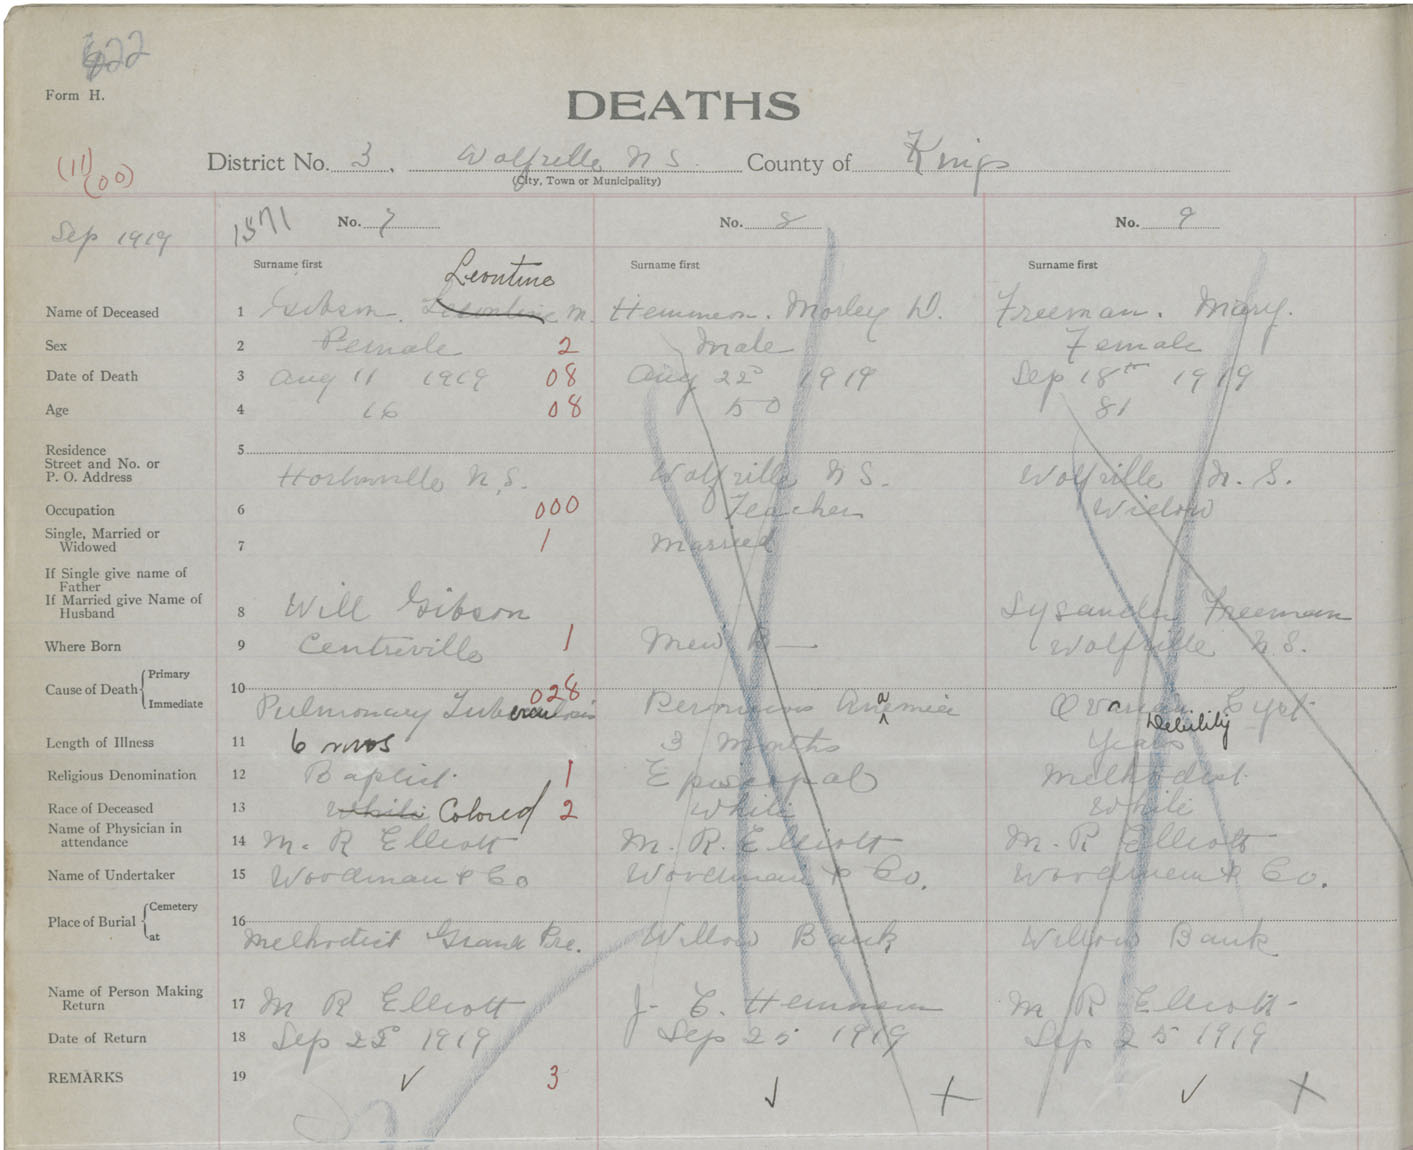 622
Form H.
DEATHS
(11)
(00)
District No. 3, Wolfville N S. County of Kings
(City, Town or Municipality)
Sep 1919
1571
No. 7 No. 8 No. 9
Surname first Surname first Surname first
Leontine
Name of Deceased 1 Gibson. M. Hemmeon. Morley D. Freeman. Mary.
Sex 2 Female 2 Male Female
Date of Death 3 Aug 11 1919 08 Aug 22d 1919 Sep 18th 1919
Age 4 16 08 50 81
Residence 5
Street and No. or
P. O. Address Hortonville N.S. Wolfville N S. Wolfville N. S.
Occupation 6 000 Teacher Widow
Single, Married or
Widowed 7 1 Married
If Single give name of
Father
If Married give Name of
Husband 8 Will Gibson Lysander Freeman
Where Born 9 Centreville 1 New B— Wolfville N.S.
Cause of Death { Primary 10 028
Immediate Pulmonary Tuberculosis Pernicious Anaemia Ovarian Cyst
Debility
Length of Illness 11 6 mos 3 Months Years
Religious Denomination 12 Baptist. 1 Episcopal Methodist.
Race of Deceased 13 White Colored 2 White White
Name of Physician in
attendance 14 M. R Elliott M. R. Elliott M. R Elliott
Name of Undertaker 15 Woodman & Co Woodman & Co. Woodman & Co.
Place of Burial { Cemetery 16
at Methodist Grand Pre. Willow Bank Willow Bank
Name of Person Making
Return 17 M R Elliott J. C. Hemmeon M R Elliott
Date of Return 18 Sep 22d 1919 Sep 25 1919 Sep 25 1919
REMARKS 19 ✓ 3 ✓ + ✓ +